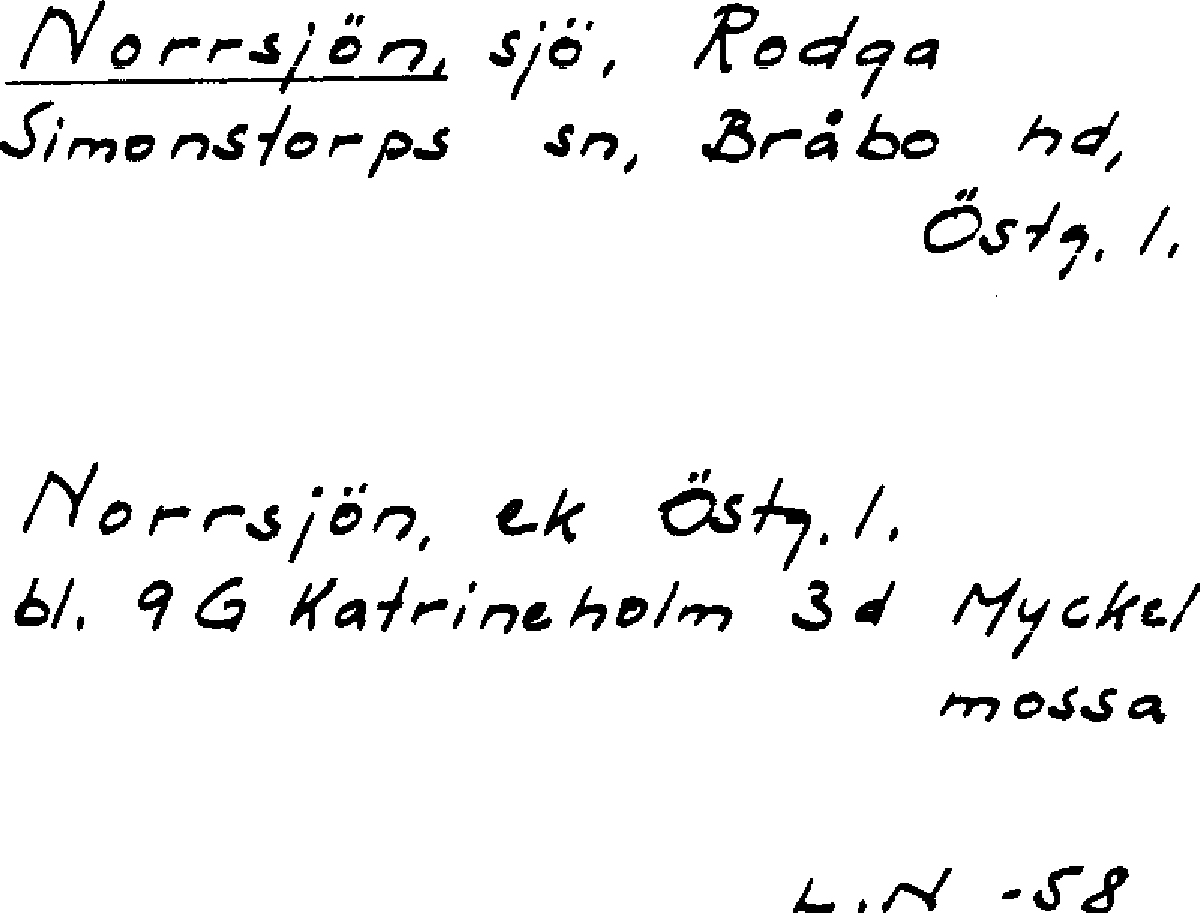 Norrsjön, sjö, Rodga
Simonstorps sn, Bråbo hd,
Östg. l.
Norrsjön, ek Östg. l.
bl. 9G Katrineholm 3d Myckel
mossa
L.N -58